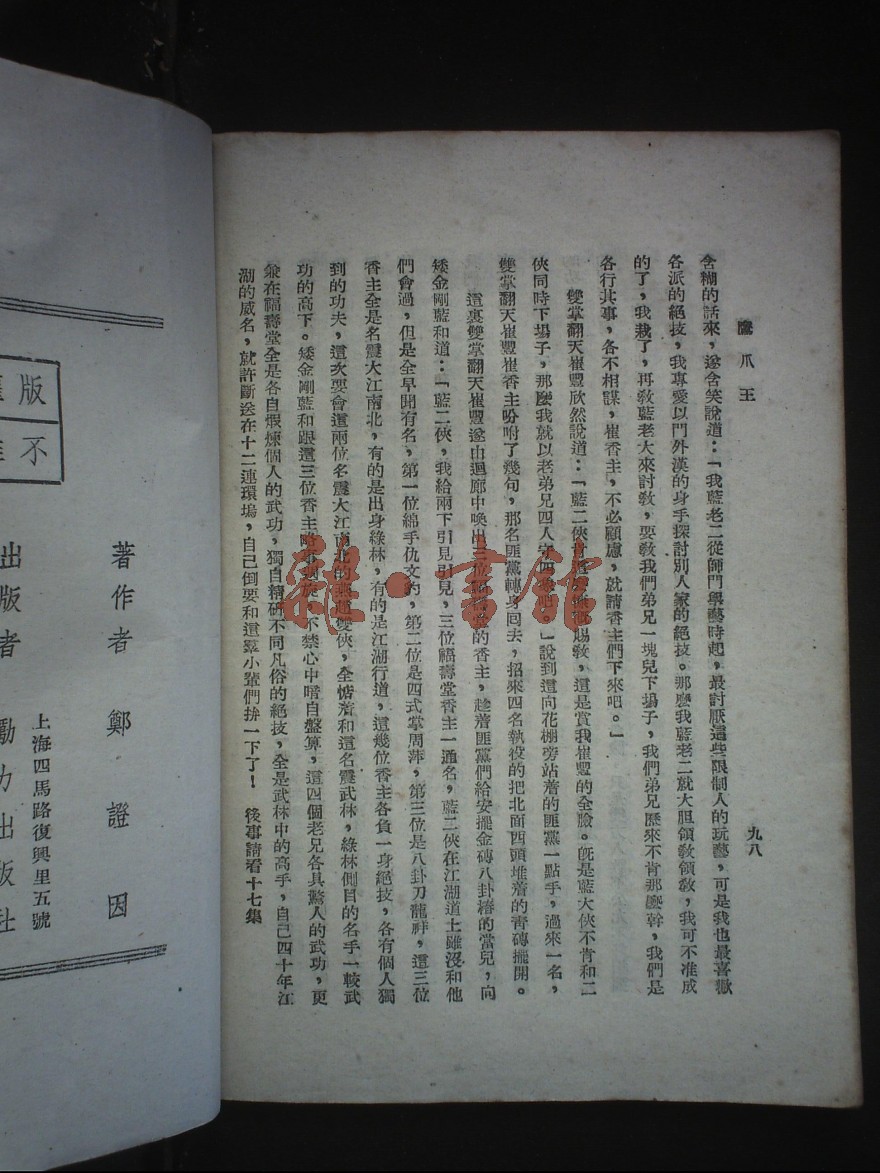 鷹爪王
九八
含糊的話來，遂含笑說道：「我藍老二從師門學藝時起，最討厭這些限制人的玩藝，可是我也最喜歡
各派的絕技，我專愛以門外漢的身手探討別人家的絕技。那麼我藍老二就大胆領敎領敎，我可不准成
的了，我栽了，再敎藍老大來討敎，要敎我們弟兄一塊兒下場子，我們弟兄歷來不肯那麼幹，我們是
各行其事，各不相謀，崔香主」，不必顧慮，就請香主們下來吧。」
雙掌翻天崔豐欣然說道：「藍二俠肯這麼慷慨賜敎，這是賞我崔豐的全臉。旣是藍大俠不肯和二
俠同時下場子，那麼我就以老弟兄四人守四象吧。」說到這向花棚旁站着的匪黨一點手，過來一名，
雙掌翻天崔豐崔香主吩咐了幾句，那名匪黨轉身囘去，招來四名執役的把北面西頭堆着的靑磚擺開。
這裏雙掌翻天崔豐遂由迴廊中喚出三位福壽堂的香主，趁着匪黨們給安擺金磚八卦樁的當兒，向
矮金剛藍和道：「藍二俠，我給兩下引見引見，三位福壽堂香主一通名，藍二俠在江湖道上雖沒和他
們會過，但是全早聞有名，第一位綿手仇文豹，第二位是四式掌周萍，第三位是八卦刀龍祥，這三位
香主全是名震大江南北，有的是出身綠林，有的是江湖行道，這幾位香主各負一身絕技，各有個人獨
到的功夫，這次要會這兩位名震大江南北的燕趙雙俠，全惦着和這名震武林，綠林側目的名手一較武
功的高下。矮金剛藍和跟這三位香主略事周旋，不禁心中暗自盤算，這四個老兄各具驚人的武功，更
兼在福壽堂全是各自煆煉個人的武功，獨自精研不同凡俗的絕技，全是武林中的高手，自己四十年江
湖的威名，就許斷送在十二連環塢，自己倒要和這羣小輩們拚一下了！　後事請看十七集
版
不
著作者　鄭證因
出版者　勵力出版社
上海四馬路復興里五號
雜·書館